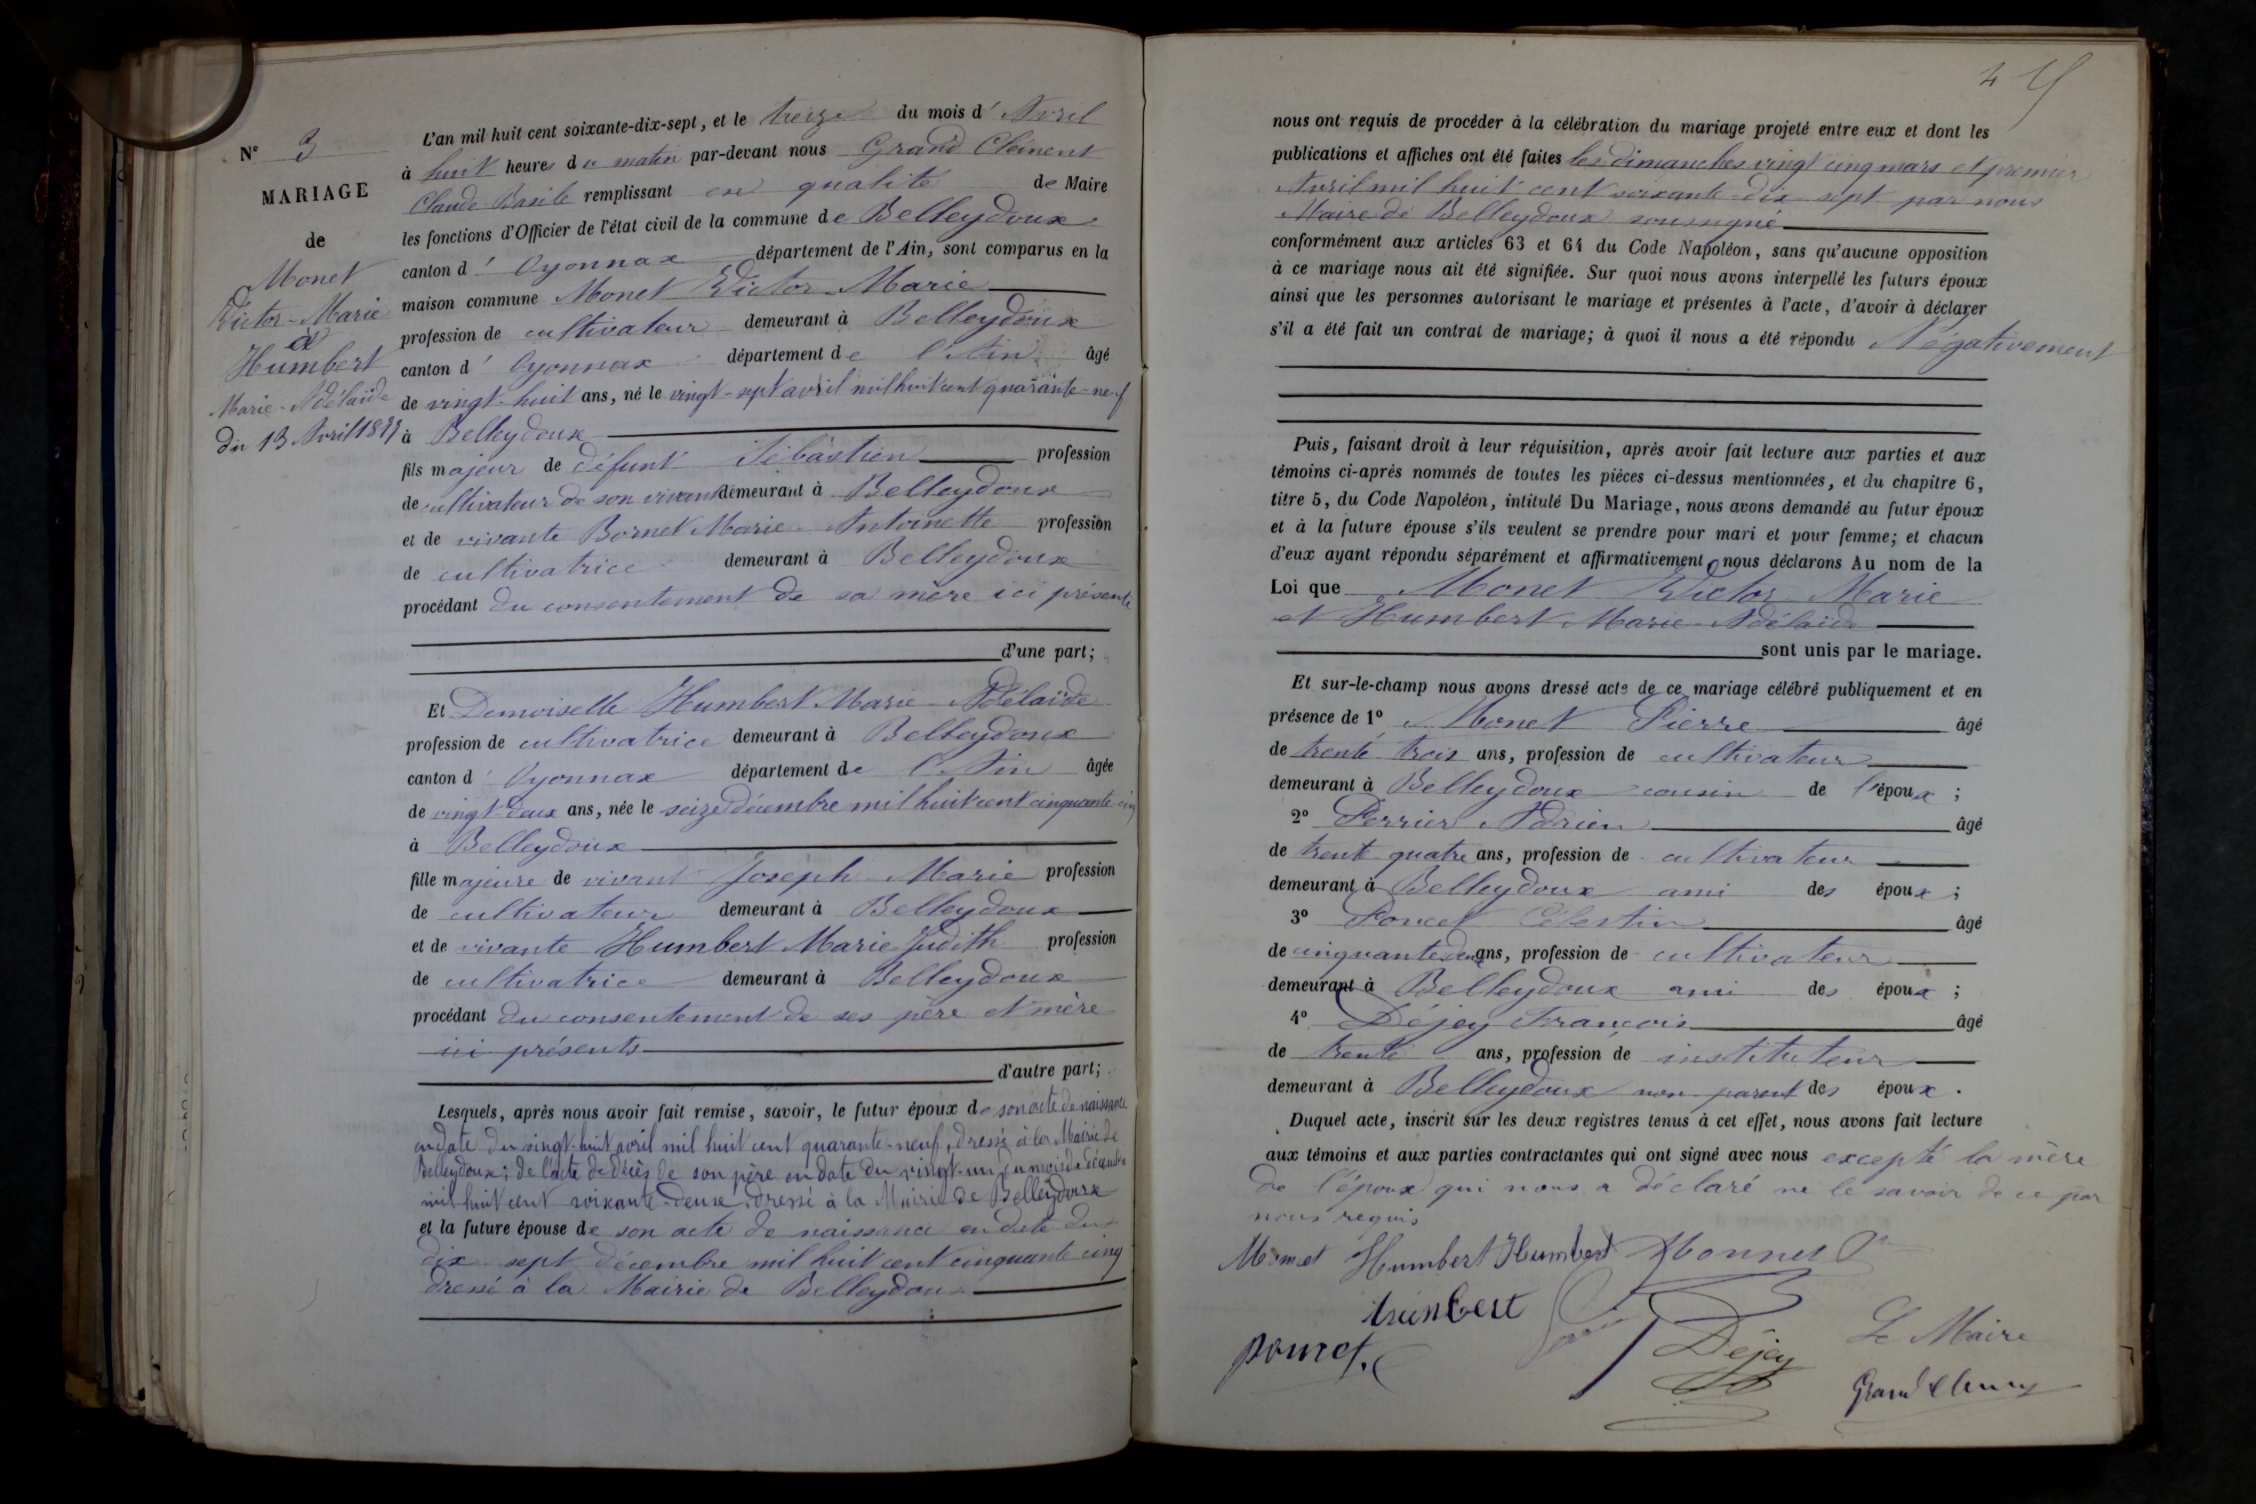 N° 3
MARIAGE
de
Monet
Victor-Marie
et
Humbert
Marie-Adélaïde
du 13 Avril 1877
L'an mil huit cent soixante-dix-sept, et le treize du mois d'Avril
à huit heures du matin par-devant nous Grand Clément
Claude Basile remplissant en qualité de Maire
les fonctions d'Officier de l'état civil de la commune de Belleydoux
canton d'Oyonnax département de l'Ain, sont comparus en la
maison commune Monet Victor-Marie
profession de cultivateur demeurant à Belleydoux
canton d'Oyonnax département de l'Ain âgé
de vingt-huit ans, né le vingt-sept avril mil huit cent quarante-neuf
à Belleydoux
fils majeur de défunt Sébastien profession
de cultivateur de son vivant demeurant à Belleydoux
et de vivante Bornet Marie-Antoinette profession
de cultivatrice demeurant à Belleydoux
procédant du consentement de sa mère ici présente
d'une part;
Et Demoiselle Humbert Marie-Adélaïde
profession de cultivatrice demeurant à Belleydoux
canton d'Oyonnax département de l'Ain âgée
de vingt-deux ans, née le seize décembre mil huit cent cinquante-cinq
à Belleydoux
fille majeure de vivant Joseph-Marie profession
de cultivateur demeurant à Belleydoux
et de vivante Humbert Marie Judith profession
de cultivatrice demeurant à Belleydoux
procédant du consentement de ses père et mère
ici présents
d'autre part;
Lesquels, après nous avoir fait remise, savoir, le futur époux de son acte de naissance
en date du vingt-huit avril mil huit cent quarante-neuf, dressé à la Mairie de
Belleydoux; de l'acte de décès de son père en date du vingt-un du mois de décembre
mil huit cent soixante-deux, dressé à la Mairie de Belleydoux
et la future épouse de son acte de naissance en date du
dix-sept décembre mil huit cent cinquante cinq
dressé à la Mairie de Belleydoux
45
nous ont requis de procéder à la célébration du mariage projeté entre eux et dont les
publications et affiches ont été faites les dimanches vingt cinq mars et premier
Avril mil huit cent soixante-dix-sept par nous
Maire de Belleydoux soussigné
conformément aux articles 63 et 64 du Code Napoléon, sans qu'aucune opposition
à ce mariage nous ait été signifiée. Sur quoi nous avons interpellé les futurs époux
ainsi que les personnes autorisant le mariage et présentes à l'acte, d'avoir à déclarer
s'il a été fait un contrat de mariage; à quoi il nous a été répondu Négativement
Puis, faisant droit à leur réquisition, après avoir fait lecture aux parties et aux
témoins ci-après nommés de toutes les pièces ci-dessus mentionnées, et du chapitre 6,
titre 5, du Code Napoléon, intitulé Du Mariage, nous avons demandé au futur époux
et à la future épouse s'ils veulent se prendre pour mari et pour femme; et chacun
d'eux ayant répondu séparément et affirmativement, nous déclarons Au nom de la
Loi que Monet Victor-Marie
et Humbert Marie-Adélaïde
sont unis par le mariage.
Et sur-le-champ nous avons dressé acte de ce mariage célébré publiquement et en
présence de 1° Monet Pierre âgé
de trente trois ans, profession de cultivateur
demeurant à Belleydoux cousin de l'époux;
2° Perrier Adrien âgé
de trente quatre ans, profession de cultivateur
demeurant à Belleydoux ami des époux;
3° Poncet Célestin âgé
de cinquante deux ans, profession de cultivateur
demeurant à Belleydoux ami des époux;
4° Déjey François âgé
de trente ans, profession de instituteur
demeurant à Belleydoux non parent des époux.
Duquel acte, inscrit sur les deux registres tenus à cet effet, nous avons fait lecture
aux témoins et aux parties contractantes qui ont signé avec nous excepté la mère
de l'époux qui nous a déclaré ne le savoir de ce par
nous requis
Monet Humbert Humbert Monnet
humbert
poncet.
Déjey
Le Maire
Grand Clément